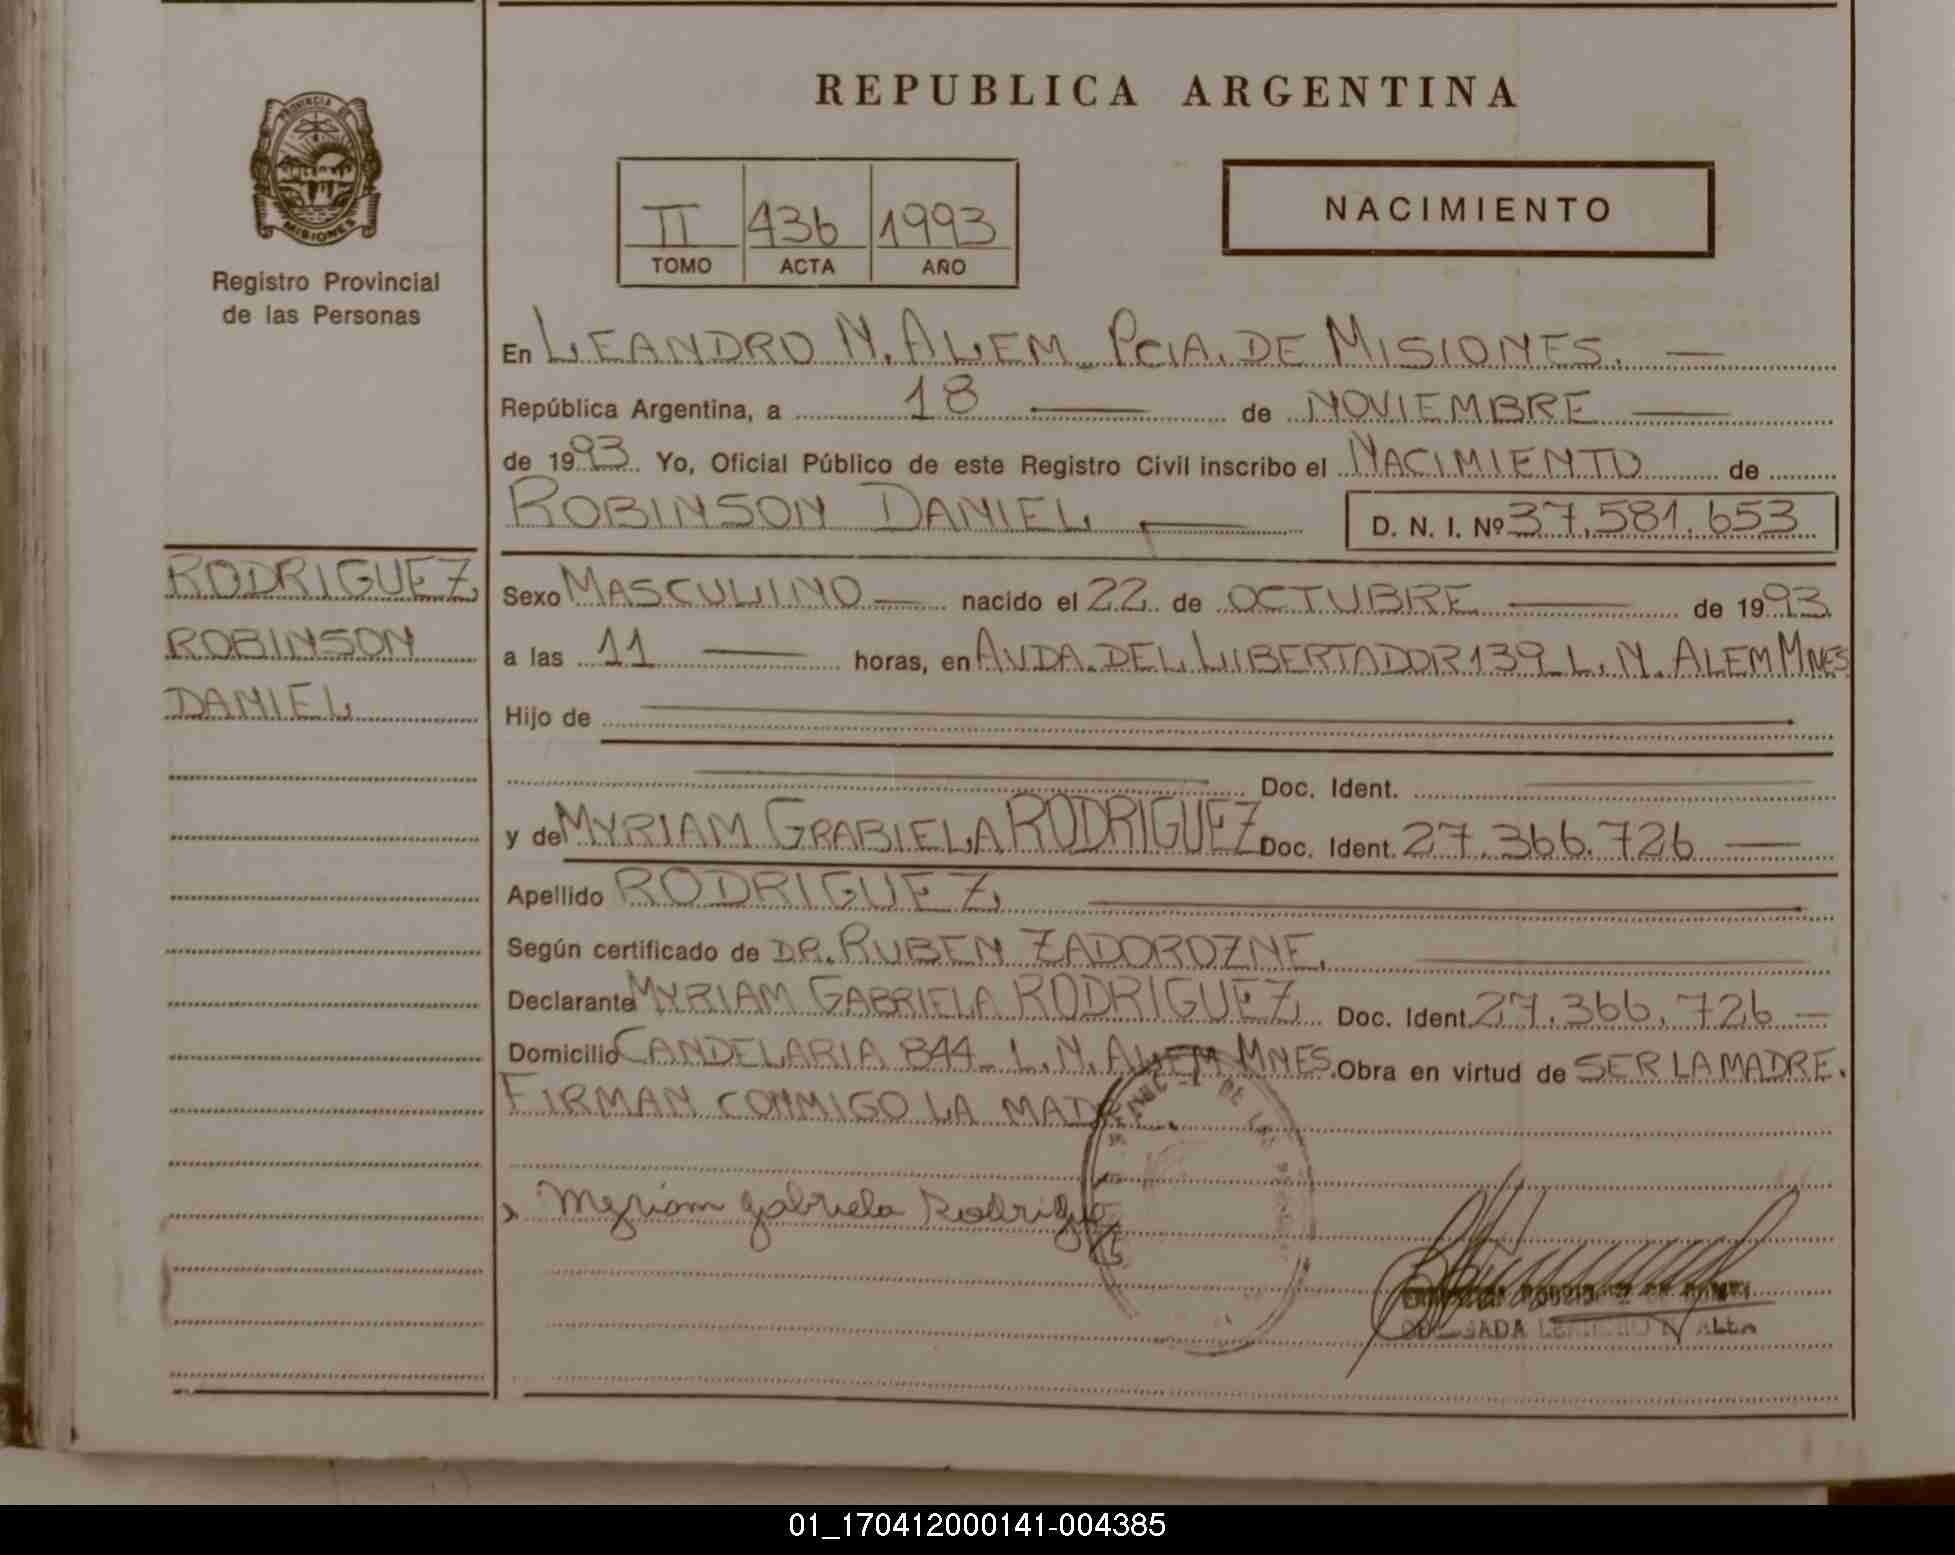 REPUBLICA ARGENTINA
PROVINCIA DE
MISIONES
Registro Provincial
de las Personas
II 436 1993
TOMO ACTA AÑO
NACIMIENTO
En LEANDRO N. ALEM PCIA. DE MISIONES.
República Argentina, a 18 de NOVIEMBRE
de 1993 Yo, Oficial Público de este Registro Civil inscribo el NACIMIENTO de
ROBINSON DANIEL D. N. I. Nº 37.581.653
RODRIGUEZ
ROBINSON
DANIEL
Sexo MASCULINO nacido el 22 de OCTUBRE de 1993
a las 11 horas, en AVDA. DEL LIBERTADOR 139 L. N. ALEM MNES
Hijo de
Doc. Ident.
y de MYRIAM GRABIELA RODRIGUEZ Doc. Ident. 27.366.726
Apellido RODRIGUEZ
Según certificado de DR. RUBEN ZADOROZNE.
Declarante MYRIAM GABRIELA RODRIGUEZ Doc. Ident. 27.366.726
Domicilio CANDELARIA 844 L. N. ALEM MNES. Obra en virtud de SER LA MADRE.
FIRMAN CONMIGO LA MADRE.
Myriam Gabriela Rodriguez
01_170412000141-004385